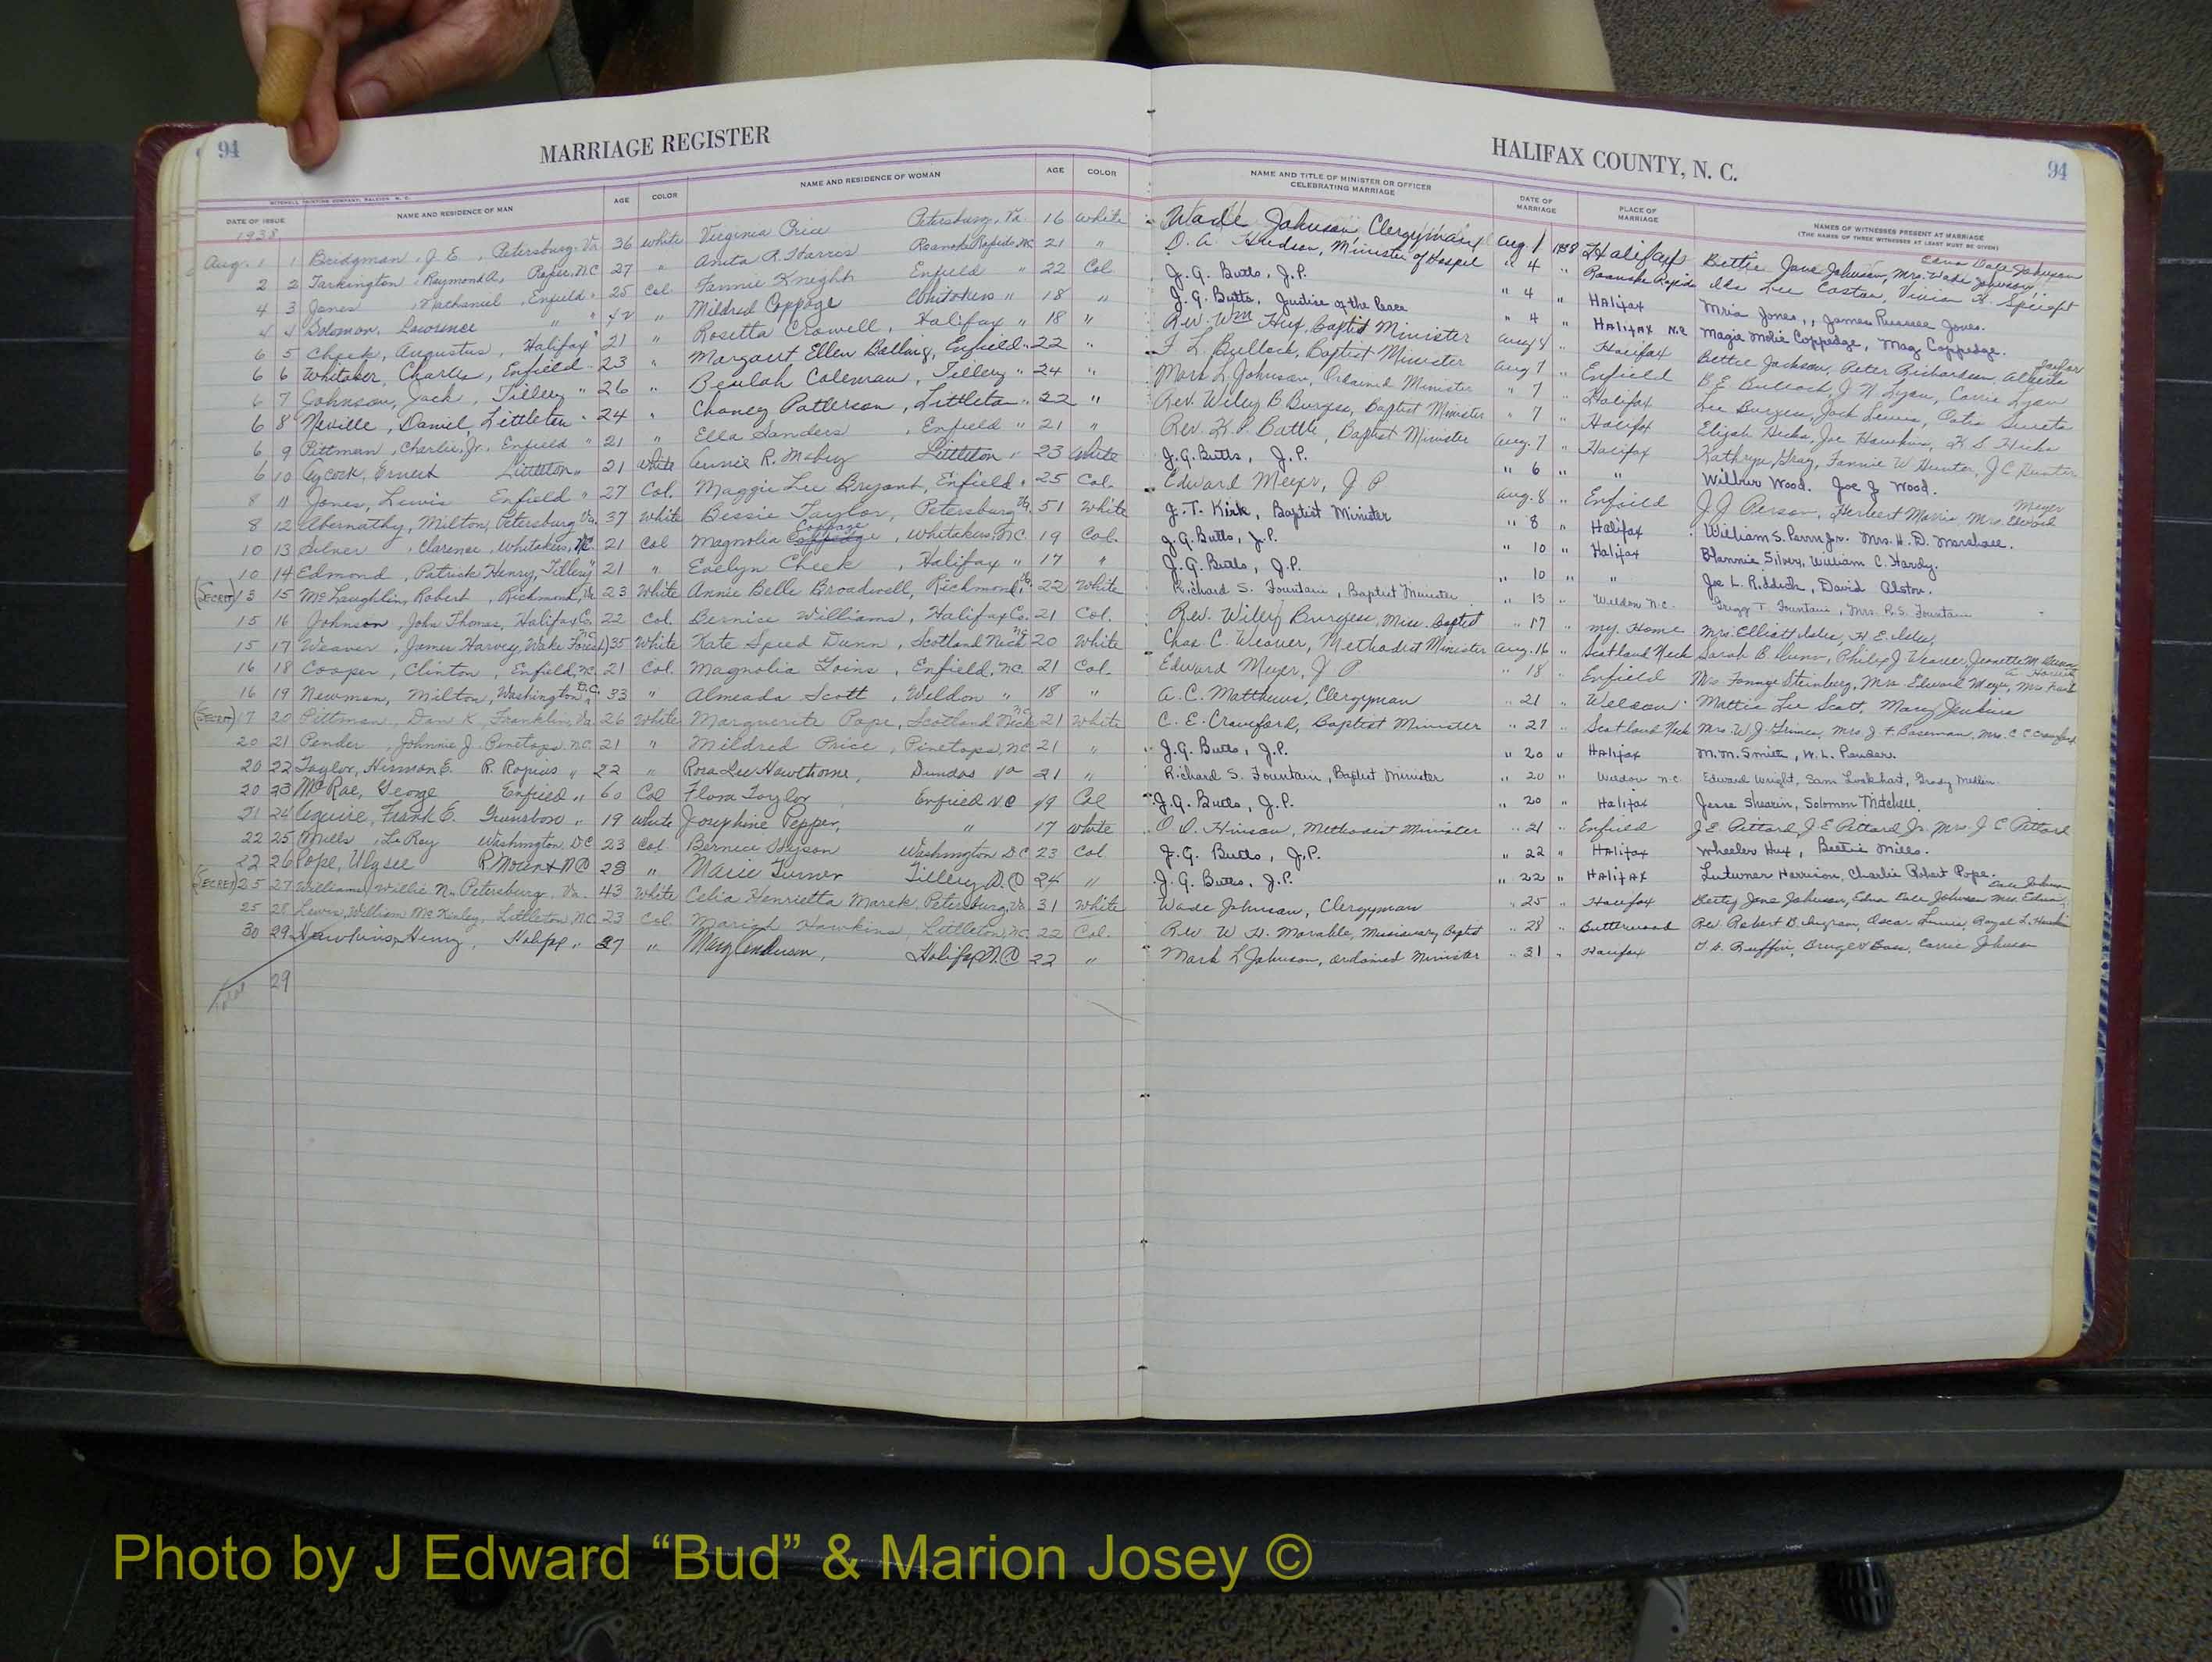 94
MARRIAGE REGISTER
HALIFAX COUNTY, N. C.
94
MITCHELL PRINTING COMPANY, RALEIGH, N. C.
DATE OF ISSUE NAME AND RESIDENCE OF MAN AGE COLOR NAME AND RESIDENCE OF WOMAN AGE COLOR NAME AND TITLE OF MINISTER OR OFFICER CELEBRATING MARRIAGE DATE OF MARRIAGE PLACE OF MARRIAGE NAMES OF WITNESSES PRESENT AT MARRIAGE
(THE NAMES OF THREE WITNESSES AT LEAST MUST BE GIVEN)
1938
Aug. 1 1 Bridgman, J. E., Petersburg, Va 36 White Virginia Price Petersburg, Va 16 White Wade Johnson, Clergyman Aug. 1 1938 Halifax Bettie Jane Johnson, Mrs. Wade Johnson, Edna Dale Johnson
2 2 Tarkington, Raymond A., Roper, N.C 27 " Anita R. Harris Roanoke Rapids NC 21 " D. A. Hudson, Minister of Gospel " 4 " Roanoke Rapids Ida Lee Coston, Vivian
4 3 Jones, Nathaniel, Enfield " 25 Col. Fannie Knight Enfield " 22 Col J. G. Butts, J.P. " 4 " Halifax Mria Jones, James Russell Jones.
4 4 Solomon, Lawrence " " 42 " Mildred Coppage Whitakers " 18 " J. G. Butts, Justice of the Peace " 4 " Halifax N.C Magie Molie Coppedge, Mag Coppedge.
6 5 Cheek, Augustus, Halifax " 21 " Rosetta Crowell, Halifax " 18 " Rev. Wm Hux, Baptist Minister Aug 8 " Halifax Bettie Jackson, Peter Richardson, Alberta Taylor
6 6 Whitaker, Charles, Enfield " 23 " Margaret Ellen Batling, Enfield " 22 " F. L. Bullock, Baptist Minister Aug 7 " Enfield B. E. Bullock, J. N. Lyon, Carrie Lyon
6 7 Johnson, Jack, Tillery " 26 " Beulah Coleman, Tillery " 24 " Mark L. Johnson, Ordained Minister " 7 " Halifax Lee Burgess, Jack Lewis,
6 8 Neville, Daniel, Littleton " 24 " Chaney Patterson, Littleton " 22 " Rev. Wiley B. Burgess, Baptist Minister " 7 " Halifax Elijah Hicks, Joe Hawkins, K S Hicks
6 9 Pittman, Charlie, Jr. Enfield " 21 " Ella Sanders, Enfield " 21 " Rev. K. P. Battle, Baptist Minister Aug. 7 " Halifax Kathryn Gray, Fannie W Hunter, J C Hunter
6 10 Aycock, Ernest Littleton " 21 White Annie R. Mabry Littleton " 23 White J. G. Butts, J.P. " 6 " " Wilbur Wood. Joe J Wood.
8 11 Jones, Lewis Enfield " 27 Col. Maggie Lee Bryant, Enfield " 25 Col. Edward Meyer, J P Aug. 8 " Enfield J. J. Pierson, Herbert Morris Mrs. Edward Meyer
8 12 Abernathy, Milton, Petersburg Va. 37 White Bessie Taylor, Petersburg Va 51 White J. T. Kirk, Baptist Minister " 8 " Halifax William S. Perry Jr. Mrs. H. D. Marshall.
10 13 Silver, Clarence, Whitakers, N.C. 21 Col Magnolia Coppage, Whitakers, NC 19 Col. J. G. Butts, J.P. " 10 " Halifax Blannie Silver, William C. Hardy.
10 14 Edmond, Patrick Henry, Tillery " 21 " Evelyn Cheek, Halifax " 17 " J. G. Butts, J.P. " 10 " " Joe L. Riddick, David Alston.
(Secret) 13 15 McLaughlin, Robert, Richmond, Va 23 White Annie Belle Broadwell, Richmond, Va 22 White Richard S. Fountain, Baptist Minister " 13 " Weldon N.C. T. Fountain, Mrs. R.S. Fountain
15 16 Johnson, John Thomas, Halifax Co. 22 Col. Bernice Williams, Halifax Co. 21 Col. Rev. Wiley Burgess, Miss. Baptist " 17 " my Home Mrs. Elliott Isles, H. E. Isles,
15 17 Weaver, James Harvey, Wake Forest, NC 35 White Kate Speed Dunn, Scotland Neck NC 20 White Chas C. Weaver, Methodist Minister Aug. 16 " Scotland Neck Sarah B. Dunn, Philip J Weaver, Jeanette M.
16 18 Cooper, Clinton, Enfield, N.C. 21 Col. Magnolia Goins, Enfield, N.C. 21 Col. Edward Meyer, J P " 18 " Enfield Mrs Fannye Steinberg, Mrs. Edward Meyer, Mrs
16 19 Newman, Milton, Washington, D.C. 33 " Almeada Scott, Weldon " 18 " A. C. Matthews, Clergyman " 21 " Weldon Mattie Lee Scott, Mary Jenkins
(Secret) 17 20 Pittman, Dan K, Franklin, Va 26 White Marguerite Pope, Scotland Neck NC 21 White C. E. Crawford, Baptist Minister " 27 " Scotland Neck Mrs. W. J. Grimes, Mrs. J. F. Baseman, Mrs. C. E. Crawford
20 21 Pender, Johnnie J. Pinetops, N.C. 21 " Mildred Price, Pinetops, N.C. 21 " J. G. Butts, J.P. " 20 " Halifax M. M. Smith, W. L. Pender.
20 22 Taylor, Herman E. R. Rapids " 22 " Rosa Lee Hawthorne, Dundas Va 21 " Richard S. Fountain, Baptist Minister " 20 " Weldon N.C. Edward Wright, Sam Lockhart, Grady
20 23 McRae, George Enfield " 60 Col Flora Taylor Enfield N C 49 Col J. G. Butts, J.P. " 20 " Halifax Jesse Shearin, Solomon Mitchell.
21 24 Frank E. " 19 White Josephine Pepper, " 17 White O. D. Hinson, Methodist Minister " 21 " Enfield J. E. Pittard, J. E Pittard Jr. Mrs. J C Pittard
22 25 Mills, LeRoy Washington, DC 23 Col Bernice Dyson Washington DC 23 Col J. G. Butts, J.P. " 22 " Halifax Wheeler Hux, Beetrie Mills.
22 26 Pope, Ulysee R Mount NC 28 " Marie Turner Tillery N.C 24 " J. G. Butts, J.P. " 22 " Halifax Luturner Harrison, Charlie Robert Pope.
(Secret) 25 27 Williams, Willie N. Petersburg, Va. 43 White Celia Henrietta Marek, Petersburg, Va 31 White Wade Johnson, Clergyman " 25 " Halifax Betty Jane Johnson, Edna Dale Johnson
25 28 Lewis, William McKinley, Littleton, N.C. 23 Col. Mariah Hawkins, Littleton, N.C. 22 Col. Rev. W. H. Marable, Missionary Baptist " 28 " Butterwood Rev. Robert D. Ingram, Oscar Lewis, Royal L. Hawkins
30 29 Hawkins, Henry, Halifax " 27 " Mary Anderson, Halifax N.C 22 " Mark L. Johnson, Ordained Minister " 31 " Halifax Ruffin, Bass, Carrie Johnson
Total 29
Photo by J Edward “Bud” & Marion Josey ©